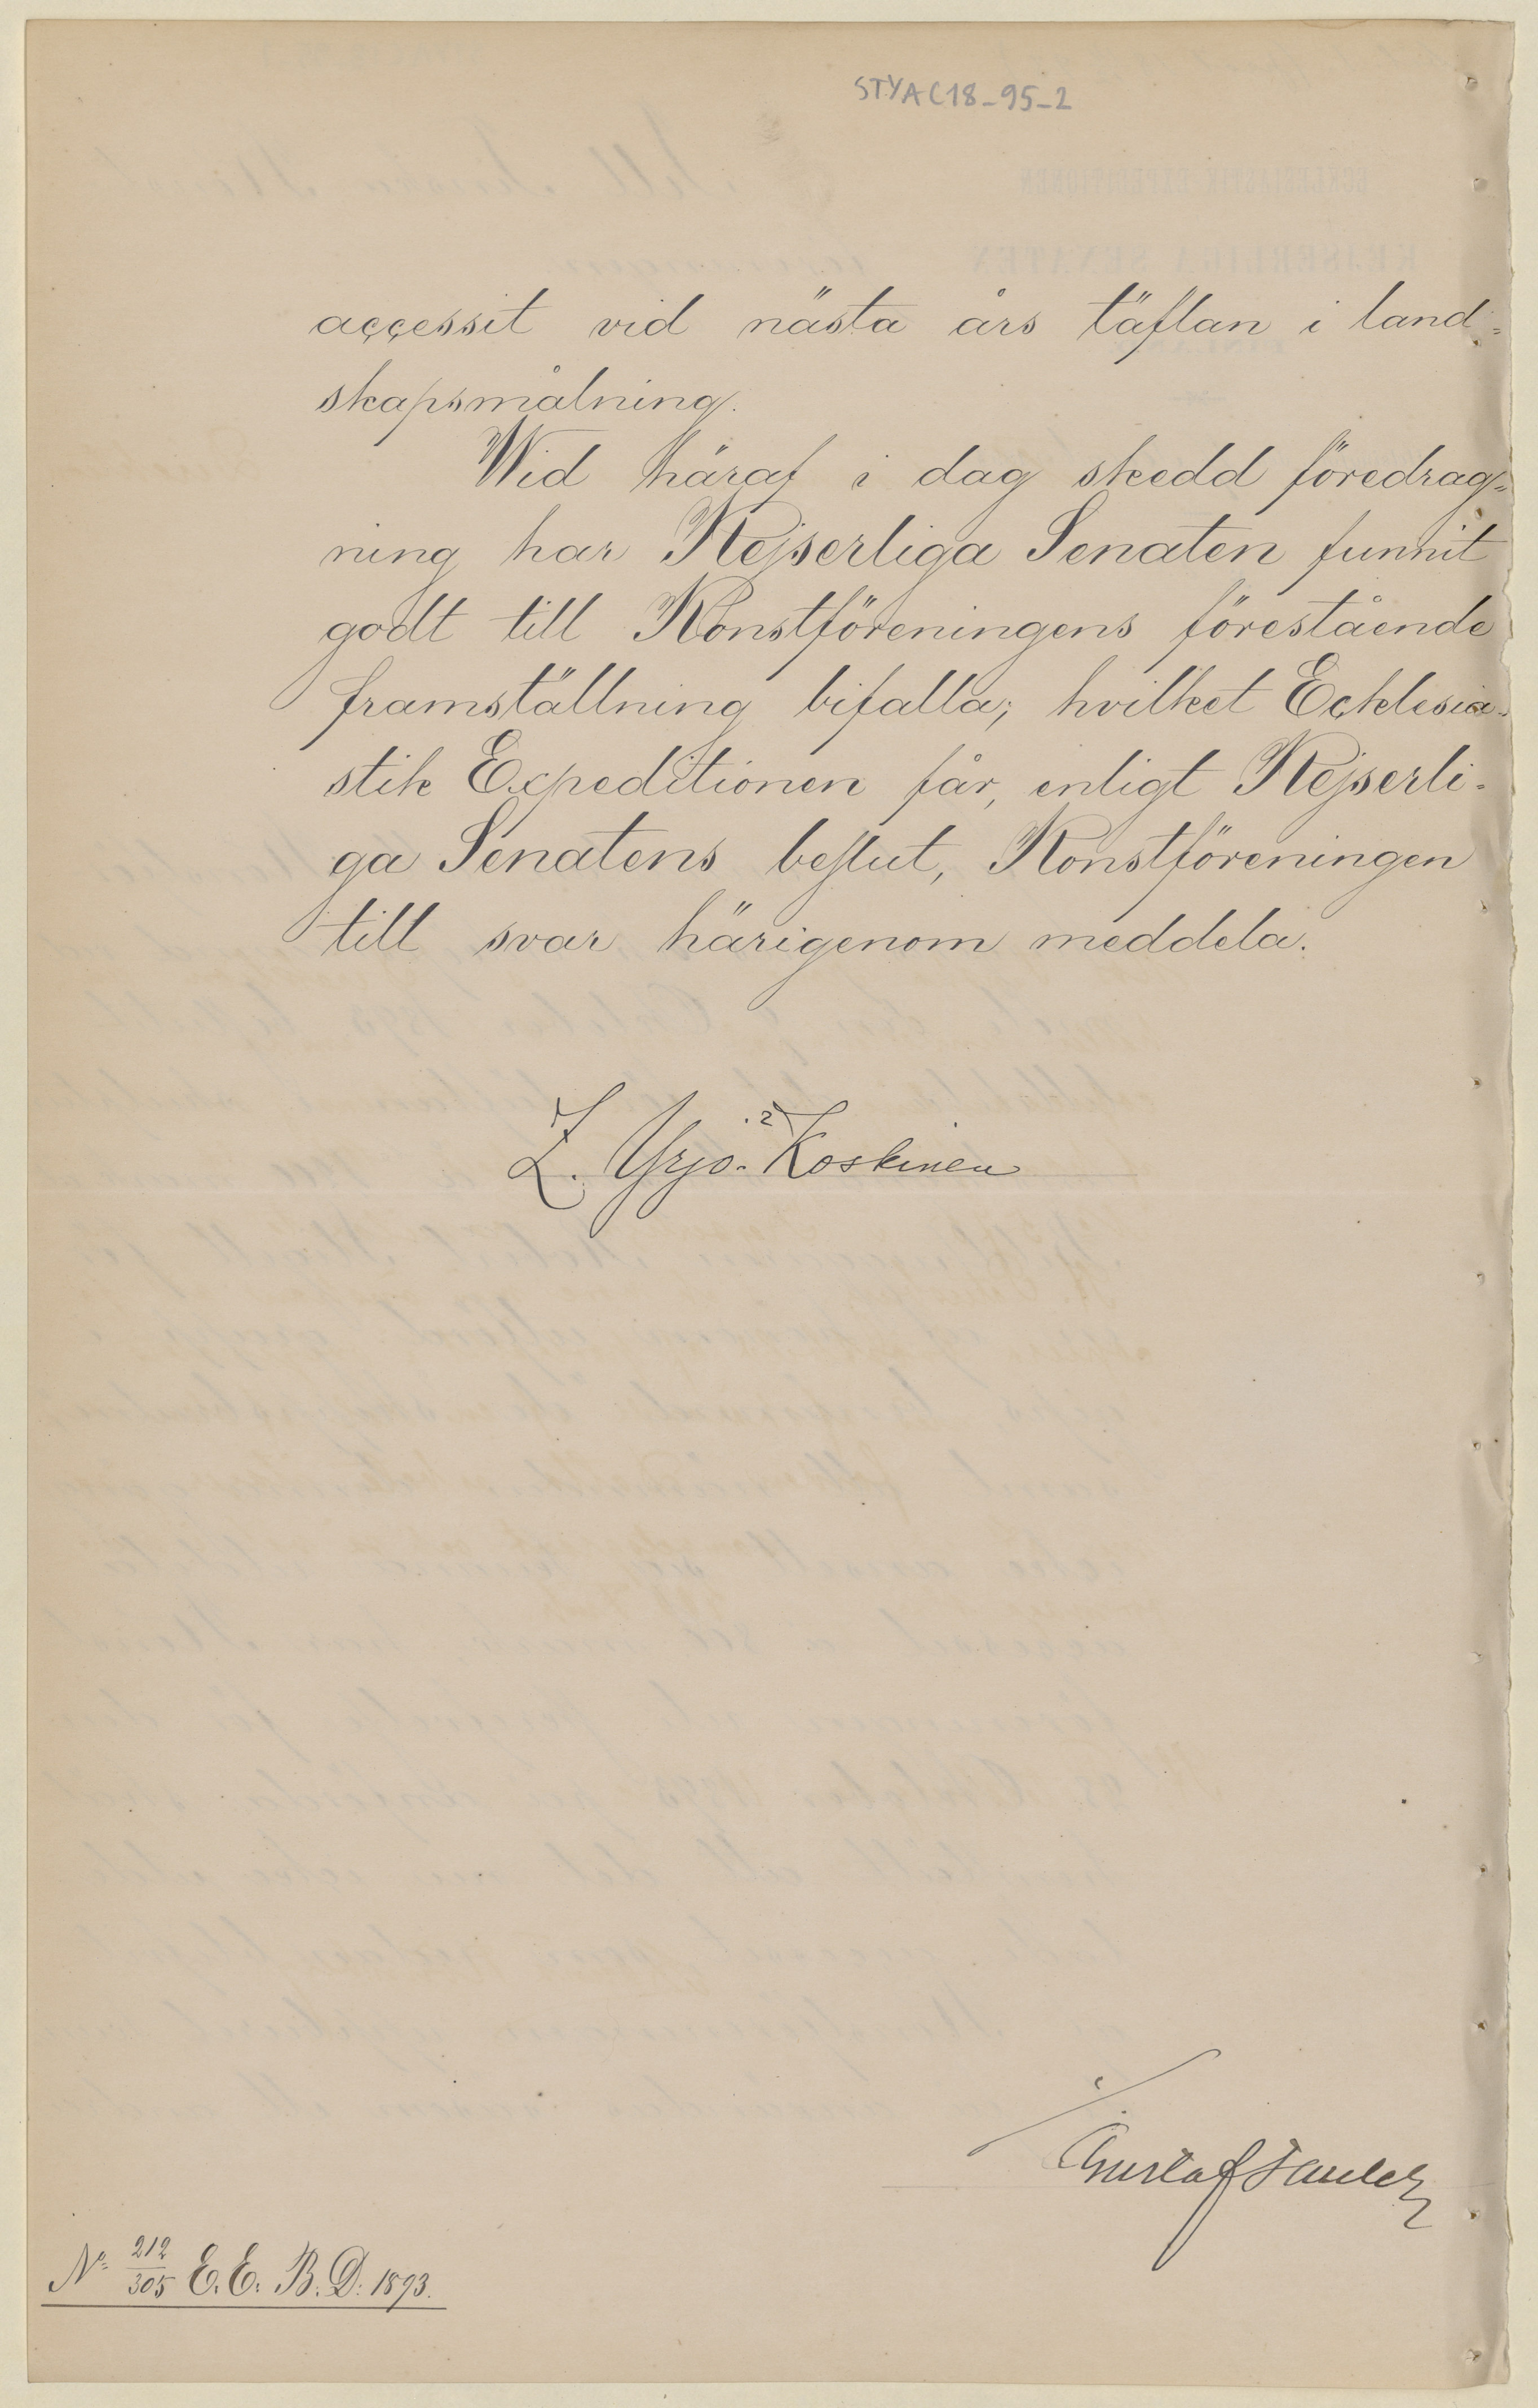 STYA C18_95_2
accessit vid nästa års täflan i land-
skapsmålning.
Wid häraf i dag skedd föredrag-
ning har Kejserliga Senaten funnit
godt till Konstföreningens förestående
framställning bifalla; hvilket Ecklesia-
stik Expeditionen får, enligt Kejserli-
ga Senatens beslut, Konstföreningen
till svar härigenom meddela.
Z. Yrjö-Koskinen
Gustaf
№ 212/305 E.E. B.D. 1893.